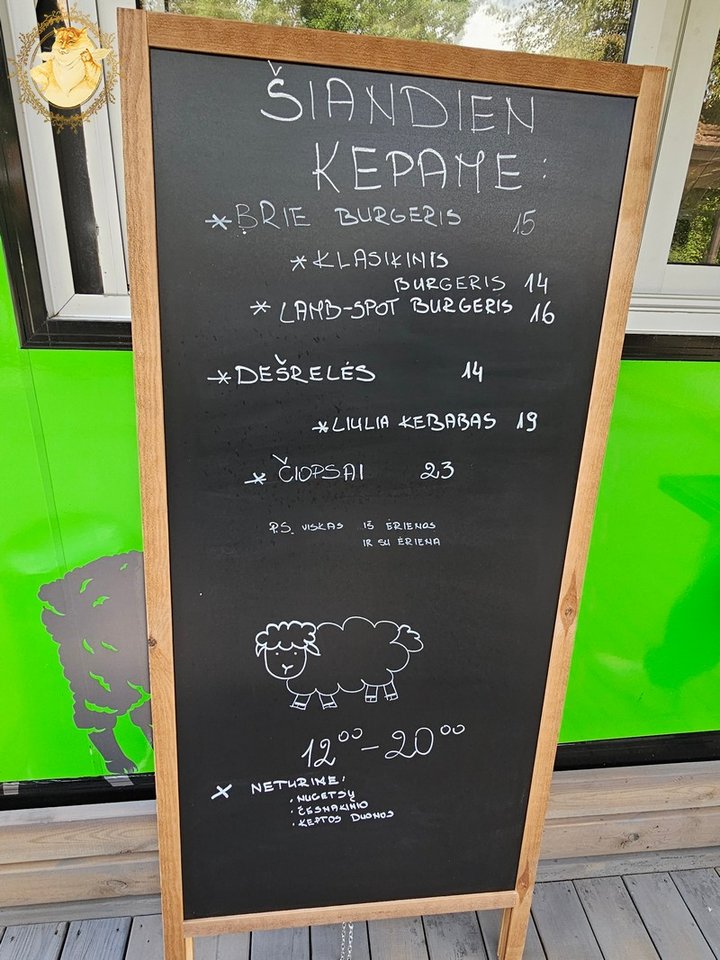 ŠIANDIEN
KEPAME:
* BRIE BURGERIS 15
* KLASIKINIS
BURGERIS 14
* LAMB-SPOT BURGERIS 16
* DEŠRELĖS 14
* LIULIA KEBABAS 19
* ČIOPSAI 23
P.S. VISKAS IŠ ĖRIENOS
IR SU ĖRIENA
12⁰⁰-20⁰⁰
× NETURIME:
· NUGETSŲ
· ČESNAKINIO
· KEPTOS DUONOS